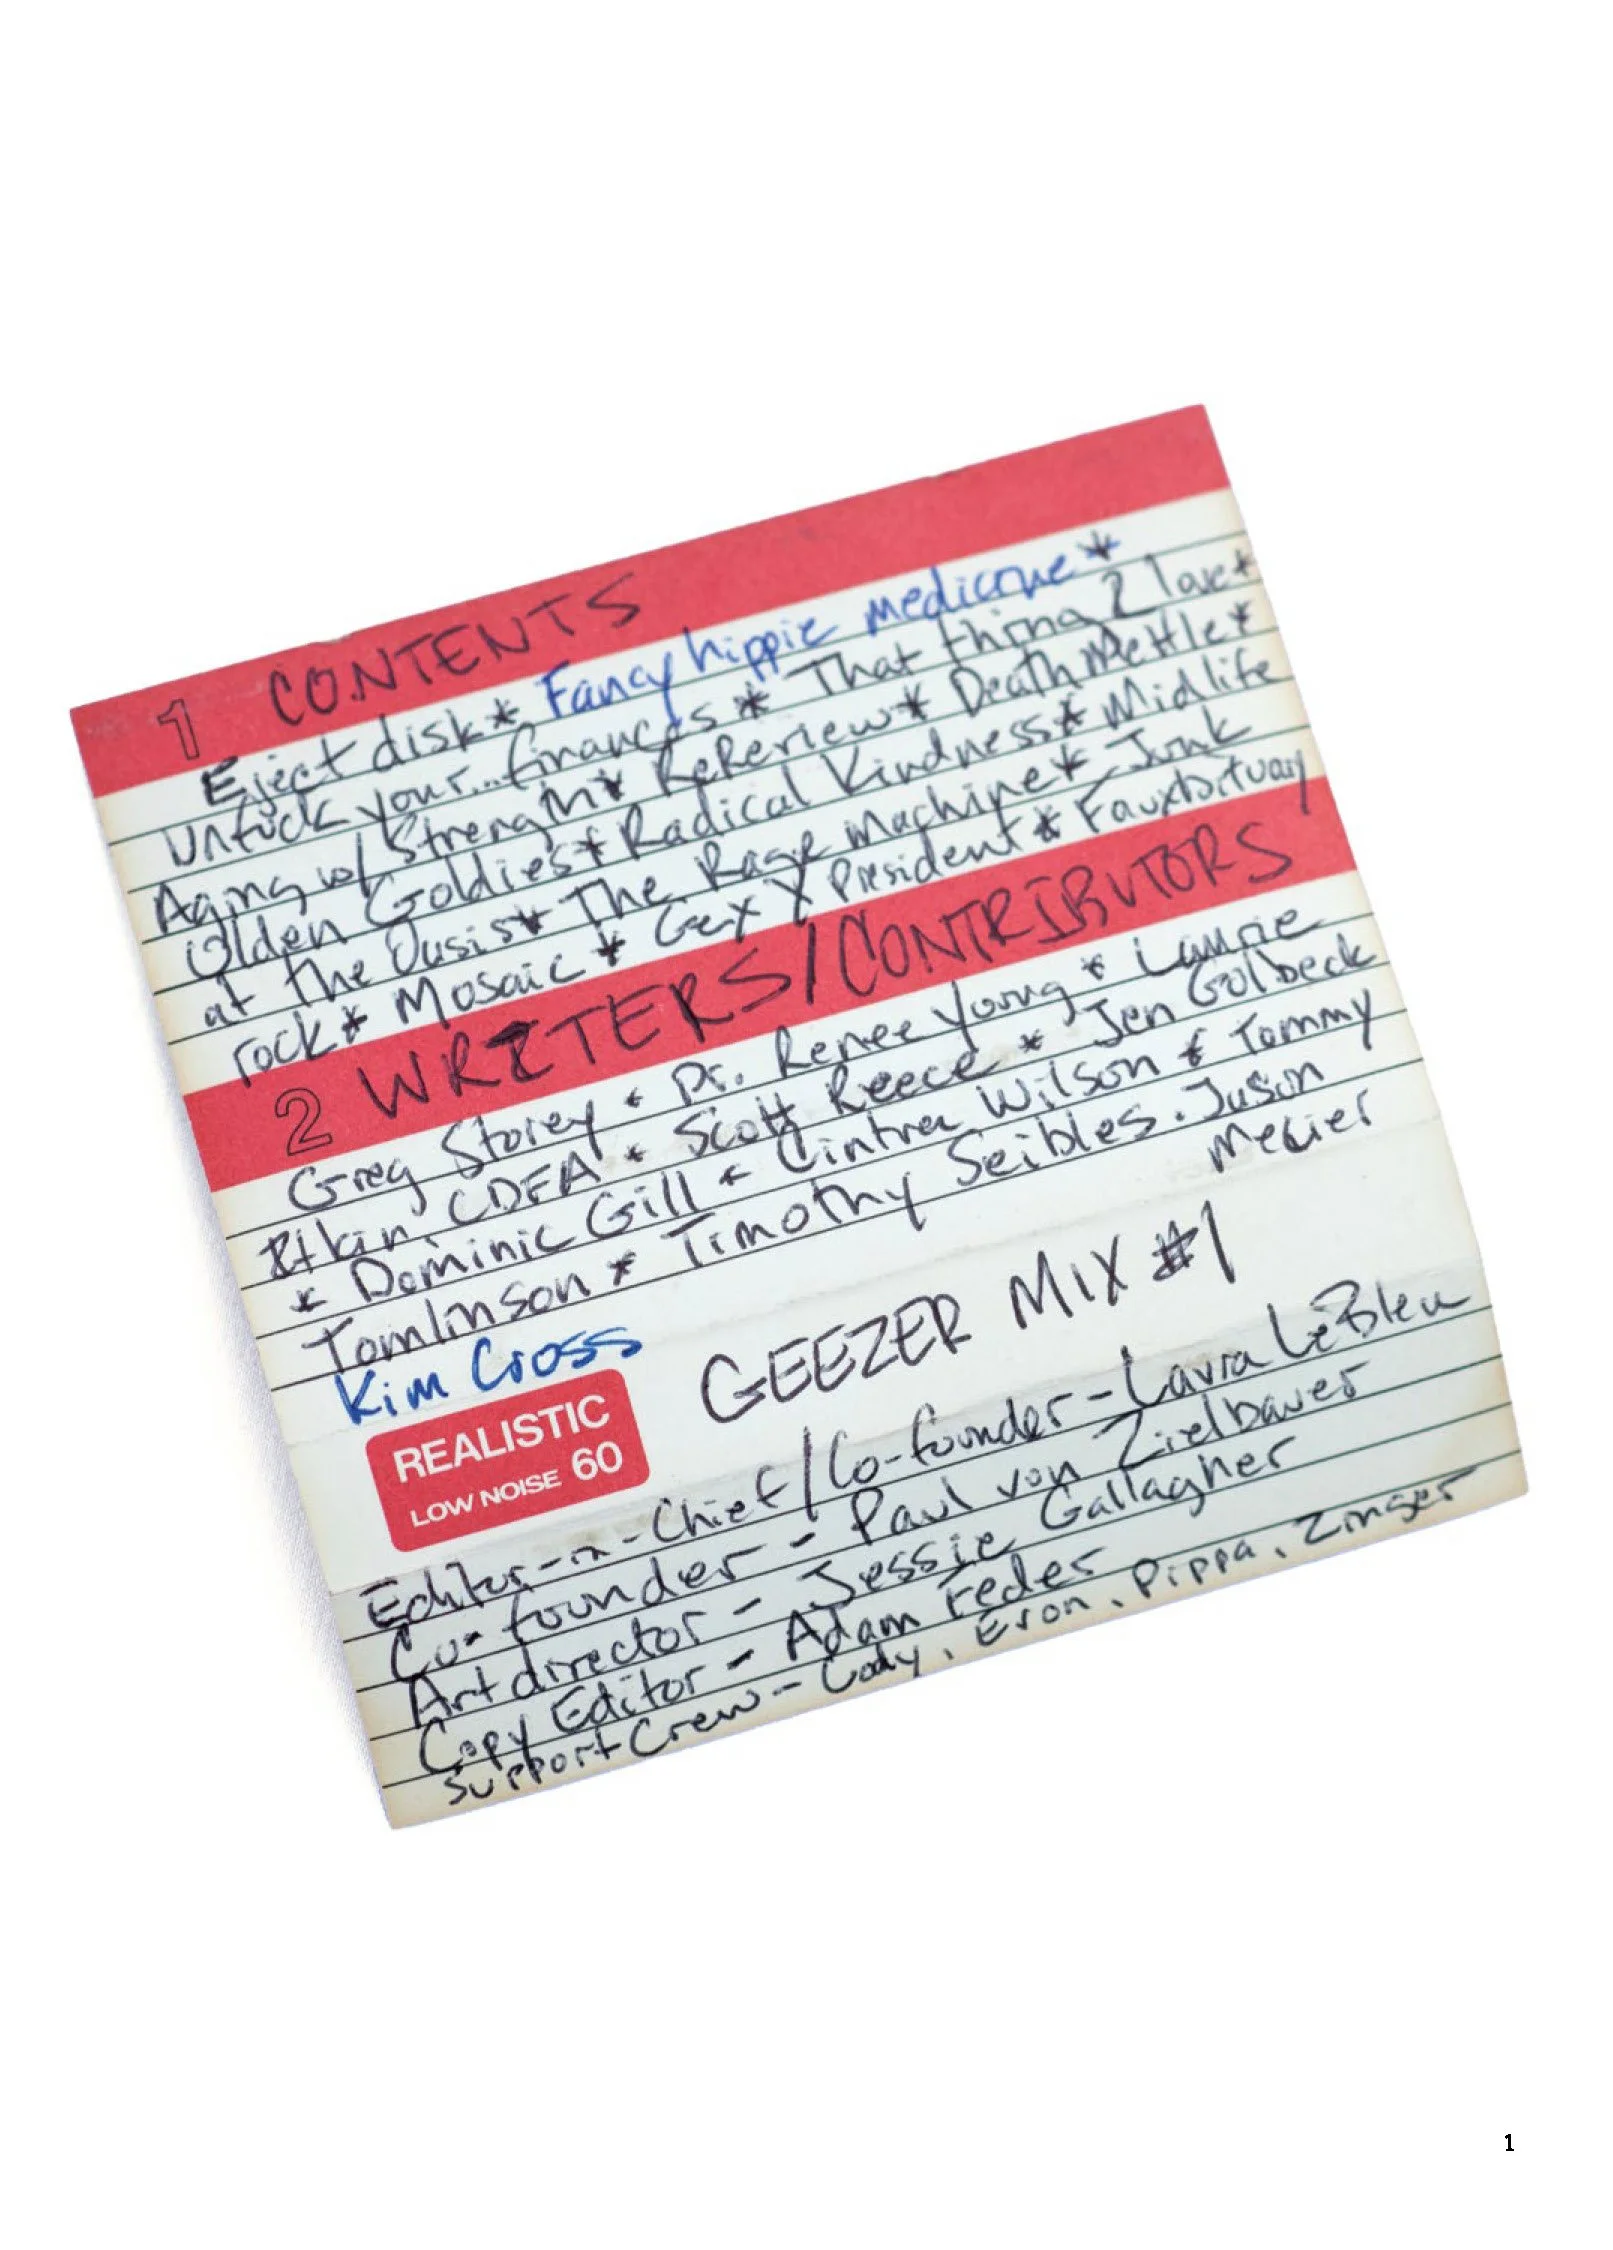 1 CONTENTS
Eject disk * Fancy hippie medicine *
Unfuck your...finances * That thing 2 love *
Aging w/ Strength * ReReview * Death Mettle *
Olden Goldies * Radical Kindness * Midlife
at the Oasis * The Rage Machine * Junk
rock * Mosaic * Gex X President * Fauxbituary
2 WRITERS/CONTRIBUTORS
Greg Storey * Dr. Renee Young * Laurie
Itkin, CDFA * Scott Reece * Jen Golbeck
* Dominic Gill * Cintra Wilson * Tommy
Tomlinson * Timothy Seibles. Jason
Mecier
Kim Cross
GEEZER MIX #1
REALISTIC
LOW NOISE 60
Editor-in-Chief/Co-founder - Laura LeBleu
Co-founder - Paul von Zielbauer
Art director - Jessie Gallagher
Copy Editor - Adam Feder
Support Crew - Cody, Eron, Pippa, Zinger
1